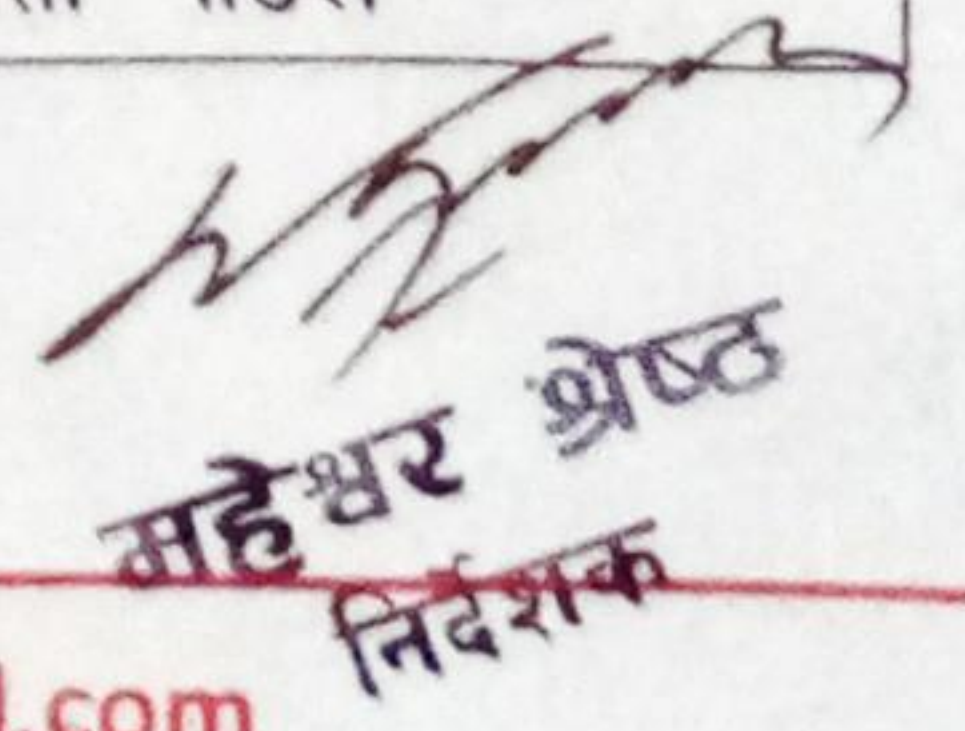 महेश्वर श्रेष्ठ
निर्देशक
.com